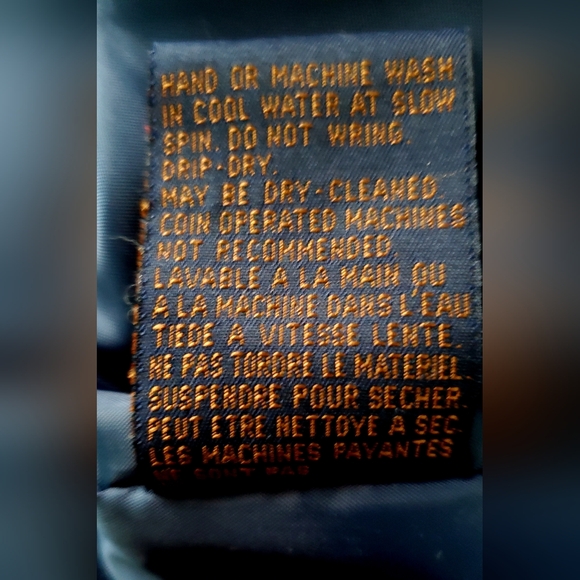 HAND OR MACHINE WASH
IN COOL WATER AT SLOW
SPIN. DO NOT WRING.
DRIP-DRY.
MAY BE DRY-CLEANED
COIN OPERATED MACHINES
NOT RECOMMENDED
LAVABLE A LA MAIN OU
A LA MACHINE DANS L'EAU
TIEDE A VITESSE LENTE.
NE PAS TORDRE LE MATERIEL.
SUSPENDRE POUR SECHER.
PEUT ETRE NETTOYE A SEC.
LES MACHINES PAYANTES
NE SONT PAS